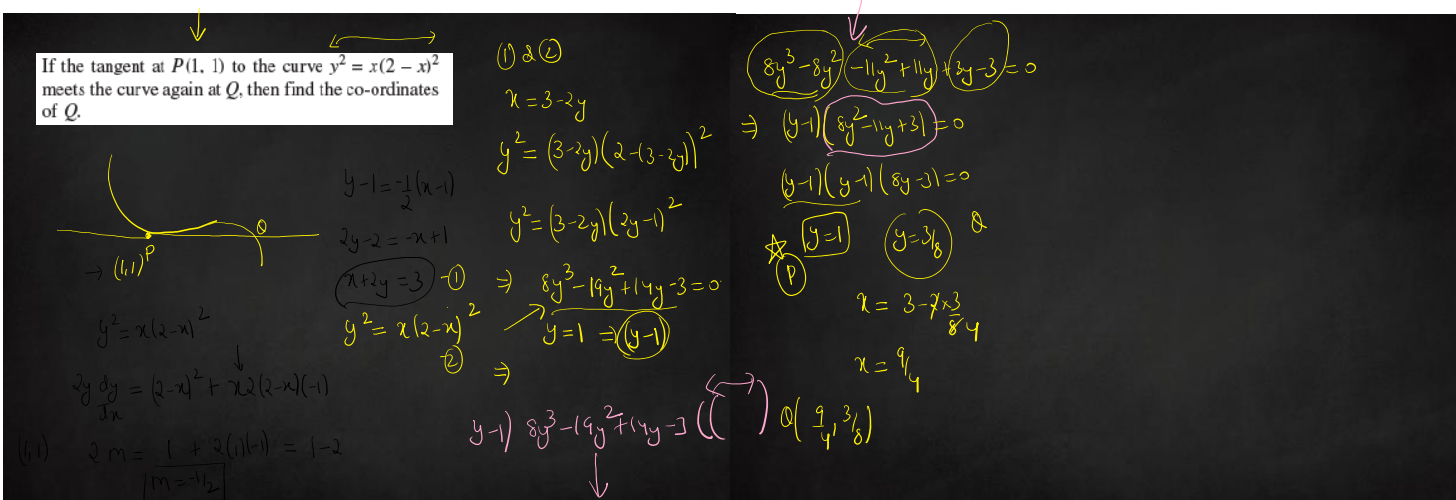 If the tangent at P(1, 1) to the curve y² = x(2 – x)²
meets the curve again at Q, then find the co-ordinates
of Q.
P
Q
→ (1,1)
y² = x(2-x)²
2y dy/dx = (2-x)² + x2(2-x)(-1)
(1,1) 2m = 1 + 2(1)(-1) = 1-2
m = -1/2
y-1 = -1/2 (x-1)
2y-2 = -x+1
x+2y = 3 -①
y² = x(2-x)²
-②
① & ②
x = 3-2y
y² = (3-2y)(2-(3-2y))²
y² = (3-2y)(2y-1)²
⇒ 8y³-19y²+14y-3=0
y=1 ⇒ (y-1)
⇒
y-1) 8y³-19y²+14y-3 ( ( )
8y³-8y² -11y²+11y +3y-3 = 0
⇒ (y-1)(8y²-11y+3)=0
(y-1)(y-1)(8y-3)=0
☆ y=1 y=3/8 Q
P
x = 3-2×3/8 4
x = 9/4
Q(9/4, 3/8)